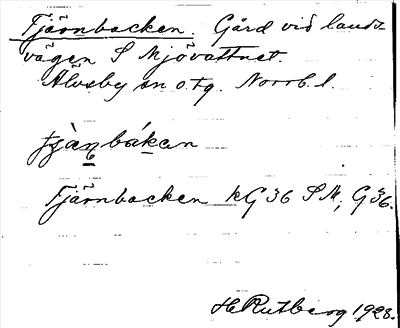 Tjärnbacken. Gård vid lands-
vägen S Mjövattnet.
Älvsby sn o. tg. Norrb. l.
Tjärnbacken kG36 SM; G36.
H Rutberg 1928.